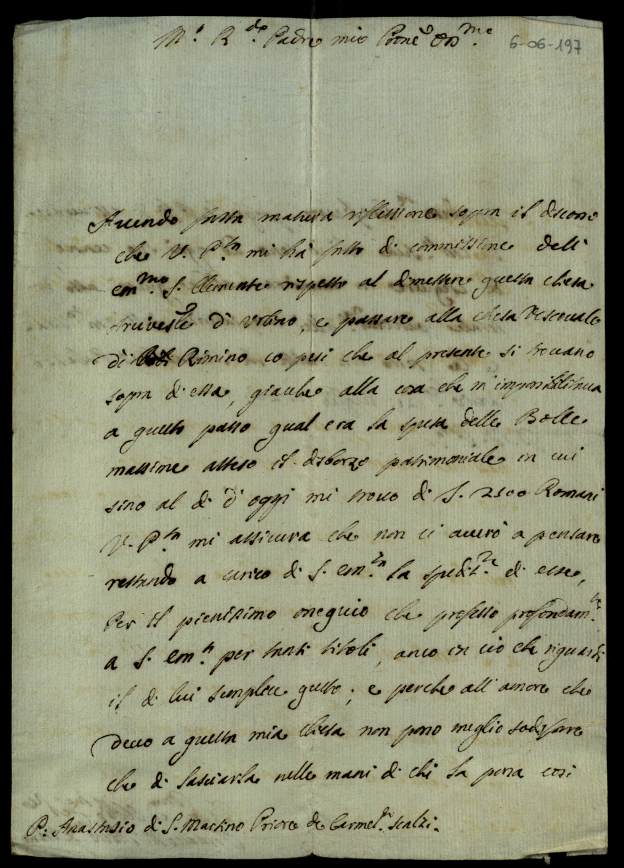 M.to R.do Padre mio Prone Oss.mo
6-06-197
Avendo fatta matura riflessione sopra il discorso
che V. P.tà mi hà fatto di commissione dell'
em.mo S. Clemente rispetto al dimettere questa chiesa
Arcivesle d'Urbino, e passare alla chiesa Vescovale
di Rimino co pesi che al presente si trovano
sopra di essa, giacche alla cosa che m'impossibilitava
a questo passo qual era la spesa delle Bolle
massime atteso il disborzo patrimoniale in cui
sino al dì d'oggi mi trovo di S. 2500 Romani
V. P.tà mi assicura che non ci averò a pensare
restando a carico di S. em.za la spediz.ne di esse,
Per il pienissimo ossequio che professo profondam.te
a S. em.za per tanti titoli, anco in ciò che riguardi
il di lui semplice gusto; e perche all'amore che
devo a questa mia chiesa non posso meglio sodisfare
che di lasciarla nelle mani di chi la possa così
P: Anastasio di S. Martino Priore de Carmel.ni scalzi.